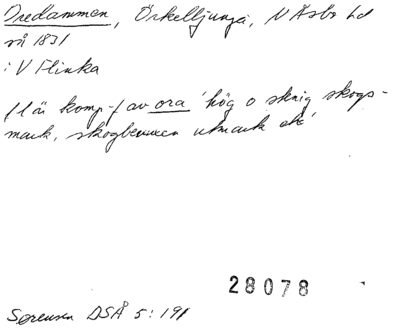 Oredammen, Örkelljunga, N Åsbo hd
så 1831
i V Flinka
/ I är komp-/ av ora 'hög o stenig skogs-
mark, skogbevuxen utmark etc'
28078
Sørensen DSÅ 5: 191